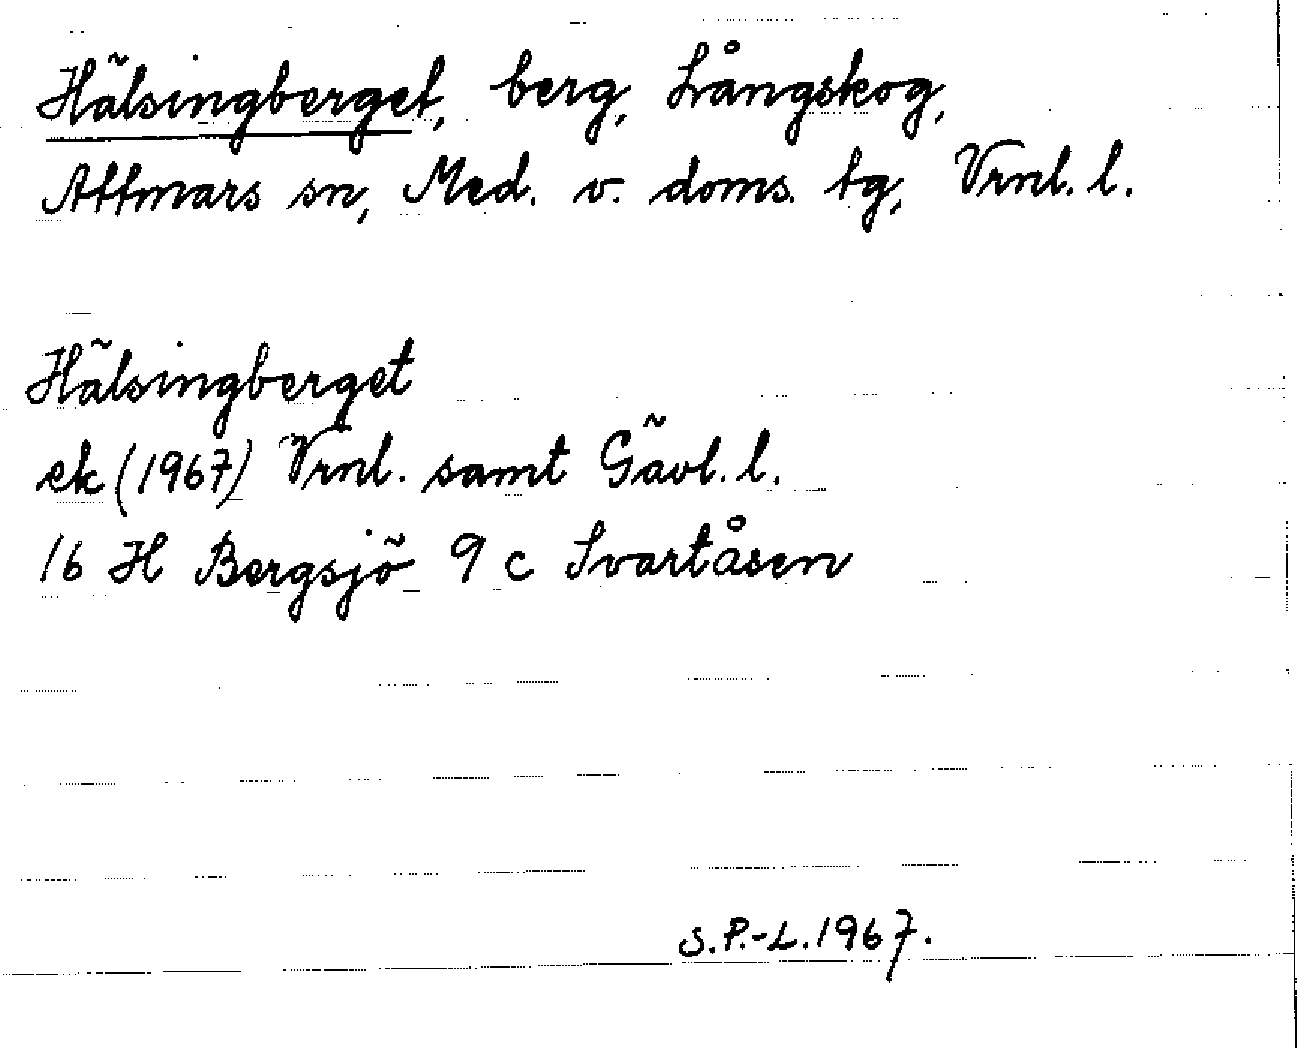 Hälsingberget, berg, Långskog,
Attmars sn, Med. v. doms. tg, Vrnl. l.
Hälsingberget
ek (1967) Vrnl. samt Gävl. l.
16 H Bergsjö 9 c Svartåsen
S.P.-L. 1967.